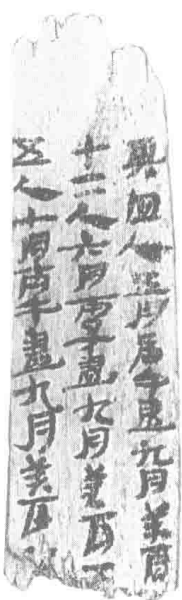 四人五月庚午盡九月癸酉
十二人六月庚子盡九月癸酉
五人十月庚午盡九月癸酉